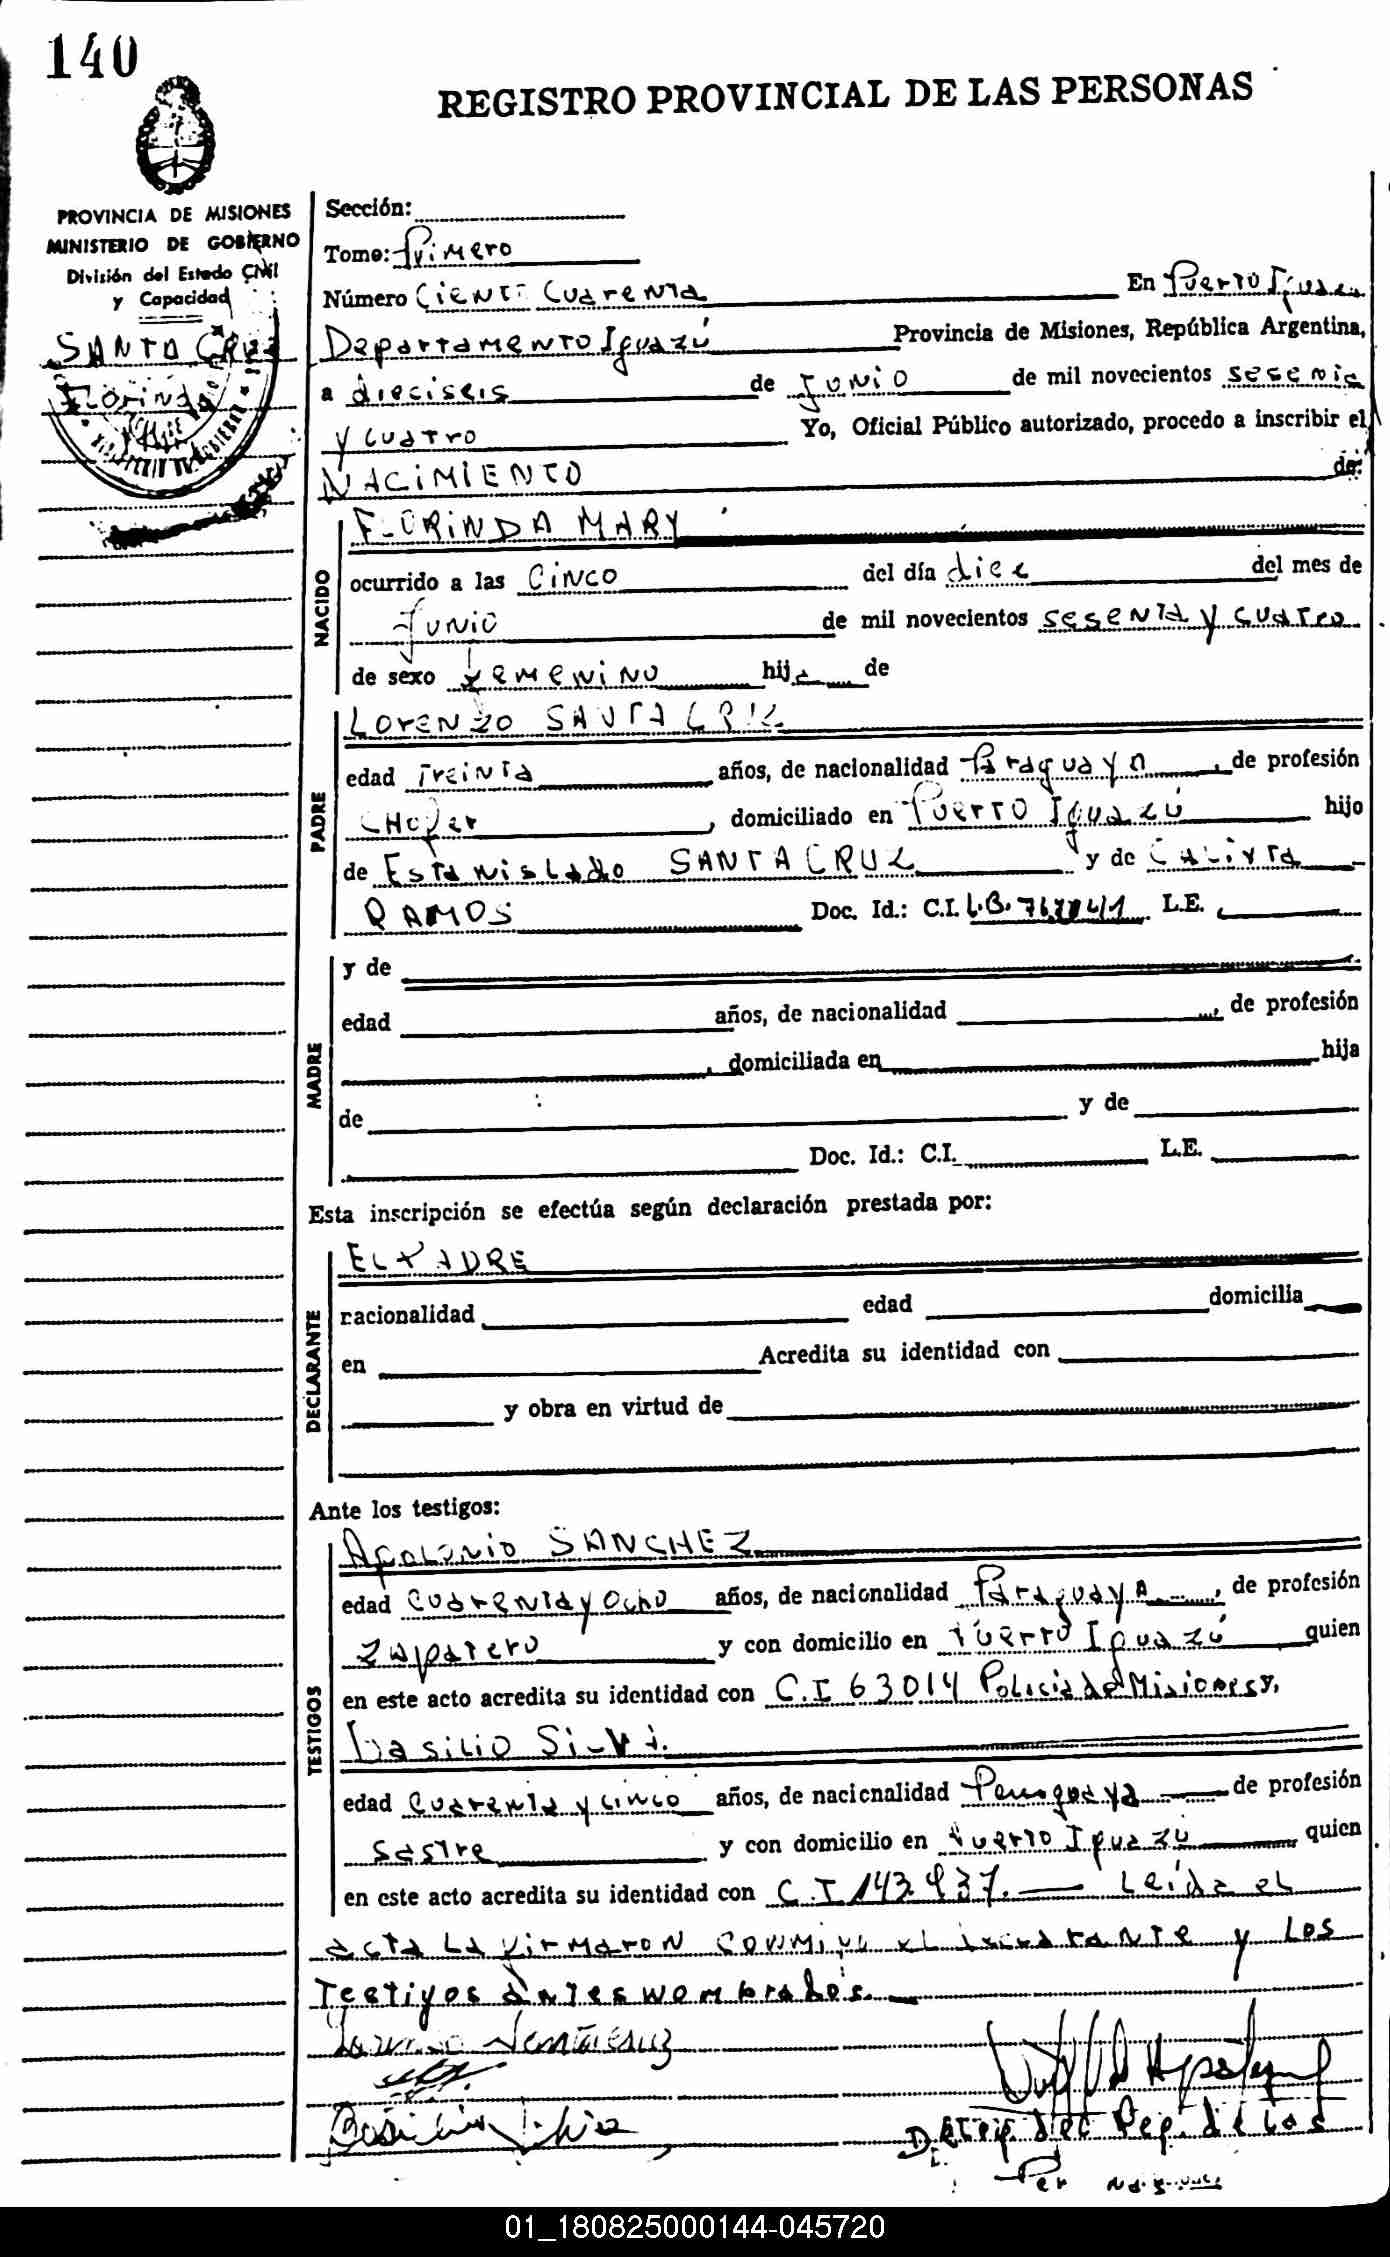 140
REGISTRO PROVINCIAL DE LAS PERSONAS
PROVINCIA DE MISIONES
MINISTERIO DE GOBIERNO
División del Estado Civil
y Capacidad
SANTA CRUZ
Florinda
Sección:
Tomo: Primero
Número Ciento Cuarenta En Puerto Iguazú
Departamento Iguazú Provincia de Misiones, República Argentina,
a dieciseis de Junio de mil novecientos sesenta
y cuatro Yo, Oficial Público autorizado, procedo a inscribir el
NACIMIENTO de:
NACIDO
FLORINDA MARY
ocurrido a las Cinco del día diez del mes de
Junio de mil novecientos sesenta y cuatro
de sexo femenino hija de
PADRE
Lorenzo SANTA CRUZ
edad Treinta años, de nacionalidad Paraguaya, de profesión
Chofer, domiciliado en Puerto Iguazú hijo
de Estanislado SANTA CRUZ y de Calixta
RAMOS Doc. Id.: C.I. L.E.
MADRE
y de
edad años, de nacionalidad , de profesión
, domiciliada en hija
de y de
Doc. Id.: C.I. L.E.
Esta inscripción se efectúa según declaración prestada por:
DECLARANTE
EL PADRE
nacionalidad edad domicilia
en Acredita su identidad con
y obra en virtud de
Ante los testigos:
TESTIGOS
Apolonio SANCHEZ
edad Cuarenta y Ocho años, de nacionalidad Paraguaya, de profesión
Zapatero y con domicilio en Puerto Iguazú quien
en este acto acredita su identidad con C.I 63014 Policia de Misiones y,
Basilio Silva.
edad Cuarenta y cinco años, de nacionalidad Paraguaya de profesión
Sastre y con domicilio en Puerto Iguazú quien
en este acto acredita su identidad con C.I 143.937. Leída el
acta la firmaron conmigo el declarante y los
Testigos antes nombrados.
Lorenzo Santacruz
Basilio Silva
Del Reg. de Las
Per
01_180825000144-045720